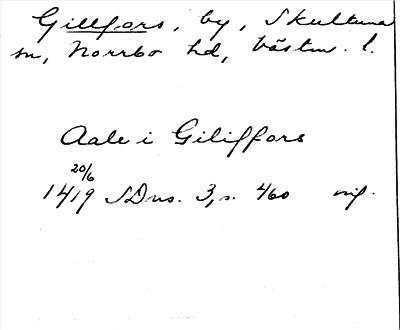 Gillfors, by, Skultuna
sn, Norrbo hd, Västm. l.
Aale i Giliffors
20/6
1419 SDns. 3, s. 460 orig.